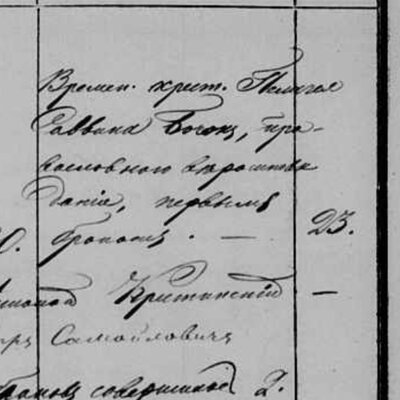 Времен. крест. Пелагея
Саввина Богонъ, пра-
вославнаго вѣроисповѣ
данія, первымъ
0. бракомъ. — 23.
Критинскій —
Самойловичъ
бракомъ совершилъ 2.